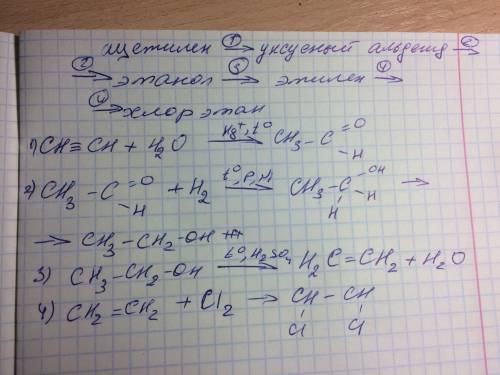 ацетилен ①→ уксусный альдегид ②→
②→ этанол ③→ этилен ④→
④→ хлорэтан
1) CH≡CH + H₂O Hg⁺, t° → CH₃ – C =O – H
2) CH₃ – C =O – H + H₂ t°, P, Ni → CH₃ – C – OH H H →
→ CH₃ – CH₂ – OH
3) CH₃ – CH₂ – OH t°, H₂SO₄ → H₂C = CH₂ + H₂O
4) CH₂ = CH₂ + Cl₂ → CH – CH
Cl Cl